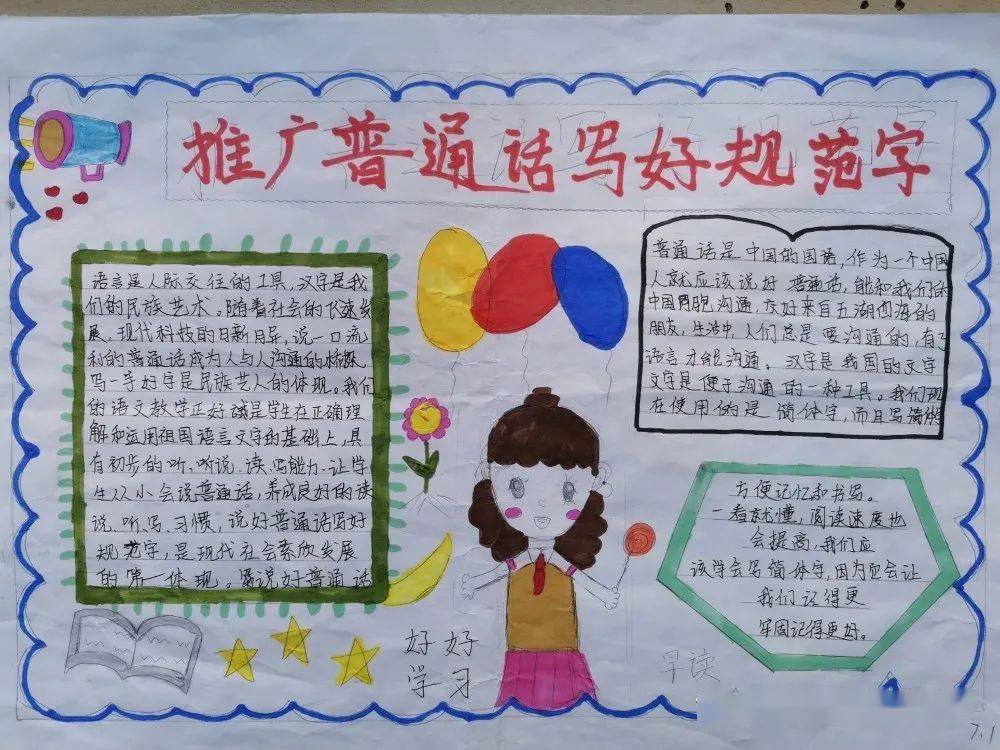 推广普通话写好规范字
语言是人际交往的工具,汉字是我
们的民族艺术。随着社会的飞速发
展,现代科技的日新月异,说一口流
利的普通话成为人与人沟通的
写一手好字是民族艺人的体现。我们
的语文教学正好诚是学生在正确理
解和运用祖国语言文字的基础上,具
有初步的听、听说、读、写能力、让学
生从小会说普通话,养成良好的读
说、听、写、习惯,说好普通话写好
规范字,是现代社会素欣发展
的第一体现。说好普通话
普通话是中国的国语,作为一个中国
人就应该说好普通话,能和我们的
中国同胞沟通,交好来自五湖四海的
朋友,生活中,人们总是要沟通的,有了
语言才能沟通。汉字是我国的文字
文字是便于沟通的一种工具。我们现
在使用的是简体字,而且写简体
方便记忆和书写。
一看就懂,阅读速度也
会提高,我们应
该学会写简体字,因为它会让
我们记得更
牢固记得更好。
好好
学习
早读
7.1